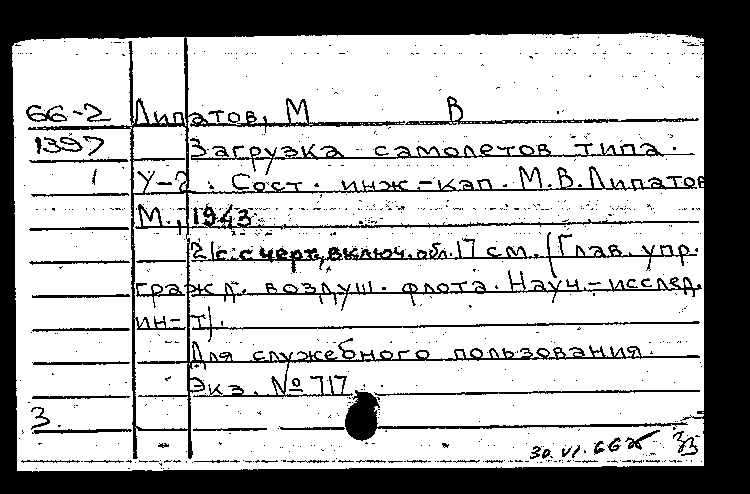 66-2 Липатов, М В
1397 Загрузка самолетов типа.
1 У-2. Сост. инж.-кап. М.В.Липатов
М., 1943.
21с. с черт., включ. обл. 17 см. (Глав. упр.
гражд. воздуш. флота. Науч.-исслед.
ин-т).
Для служебного пользования.
Экз. № 717
3.
30.VI.66